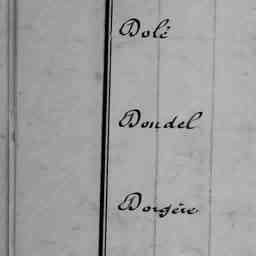 Dolé
Dondel
Dorgère